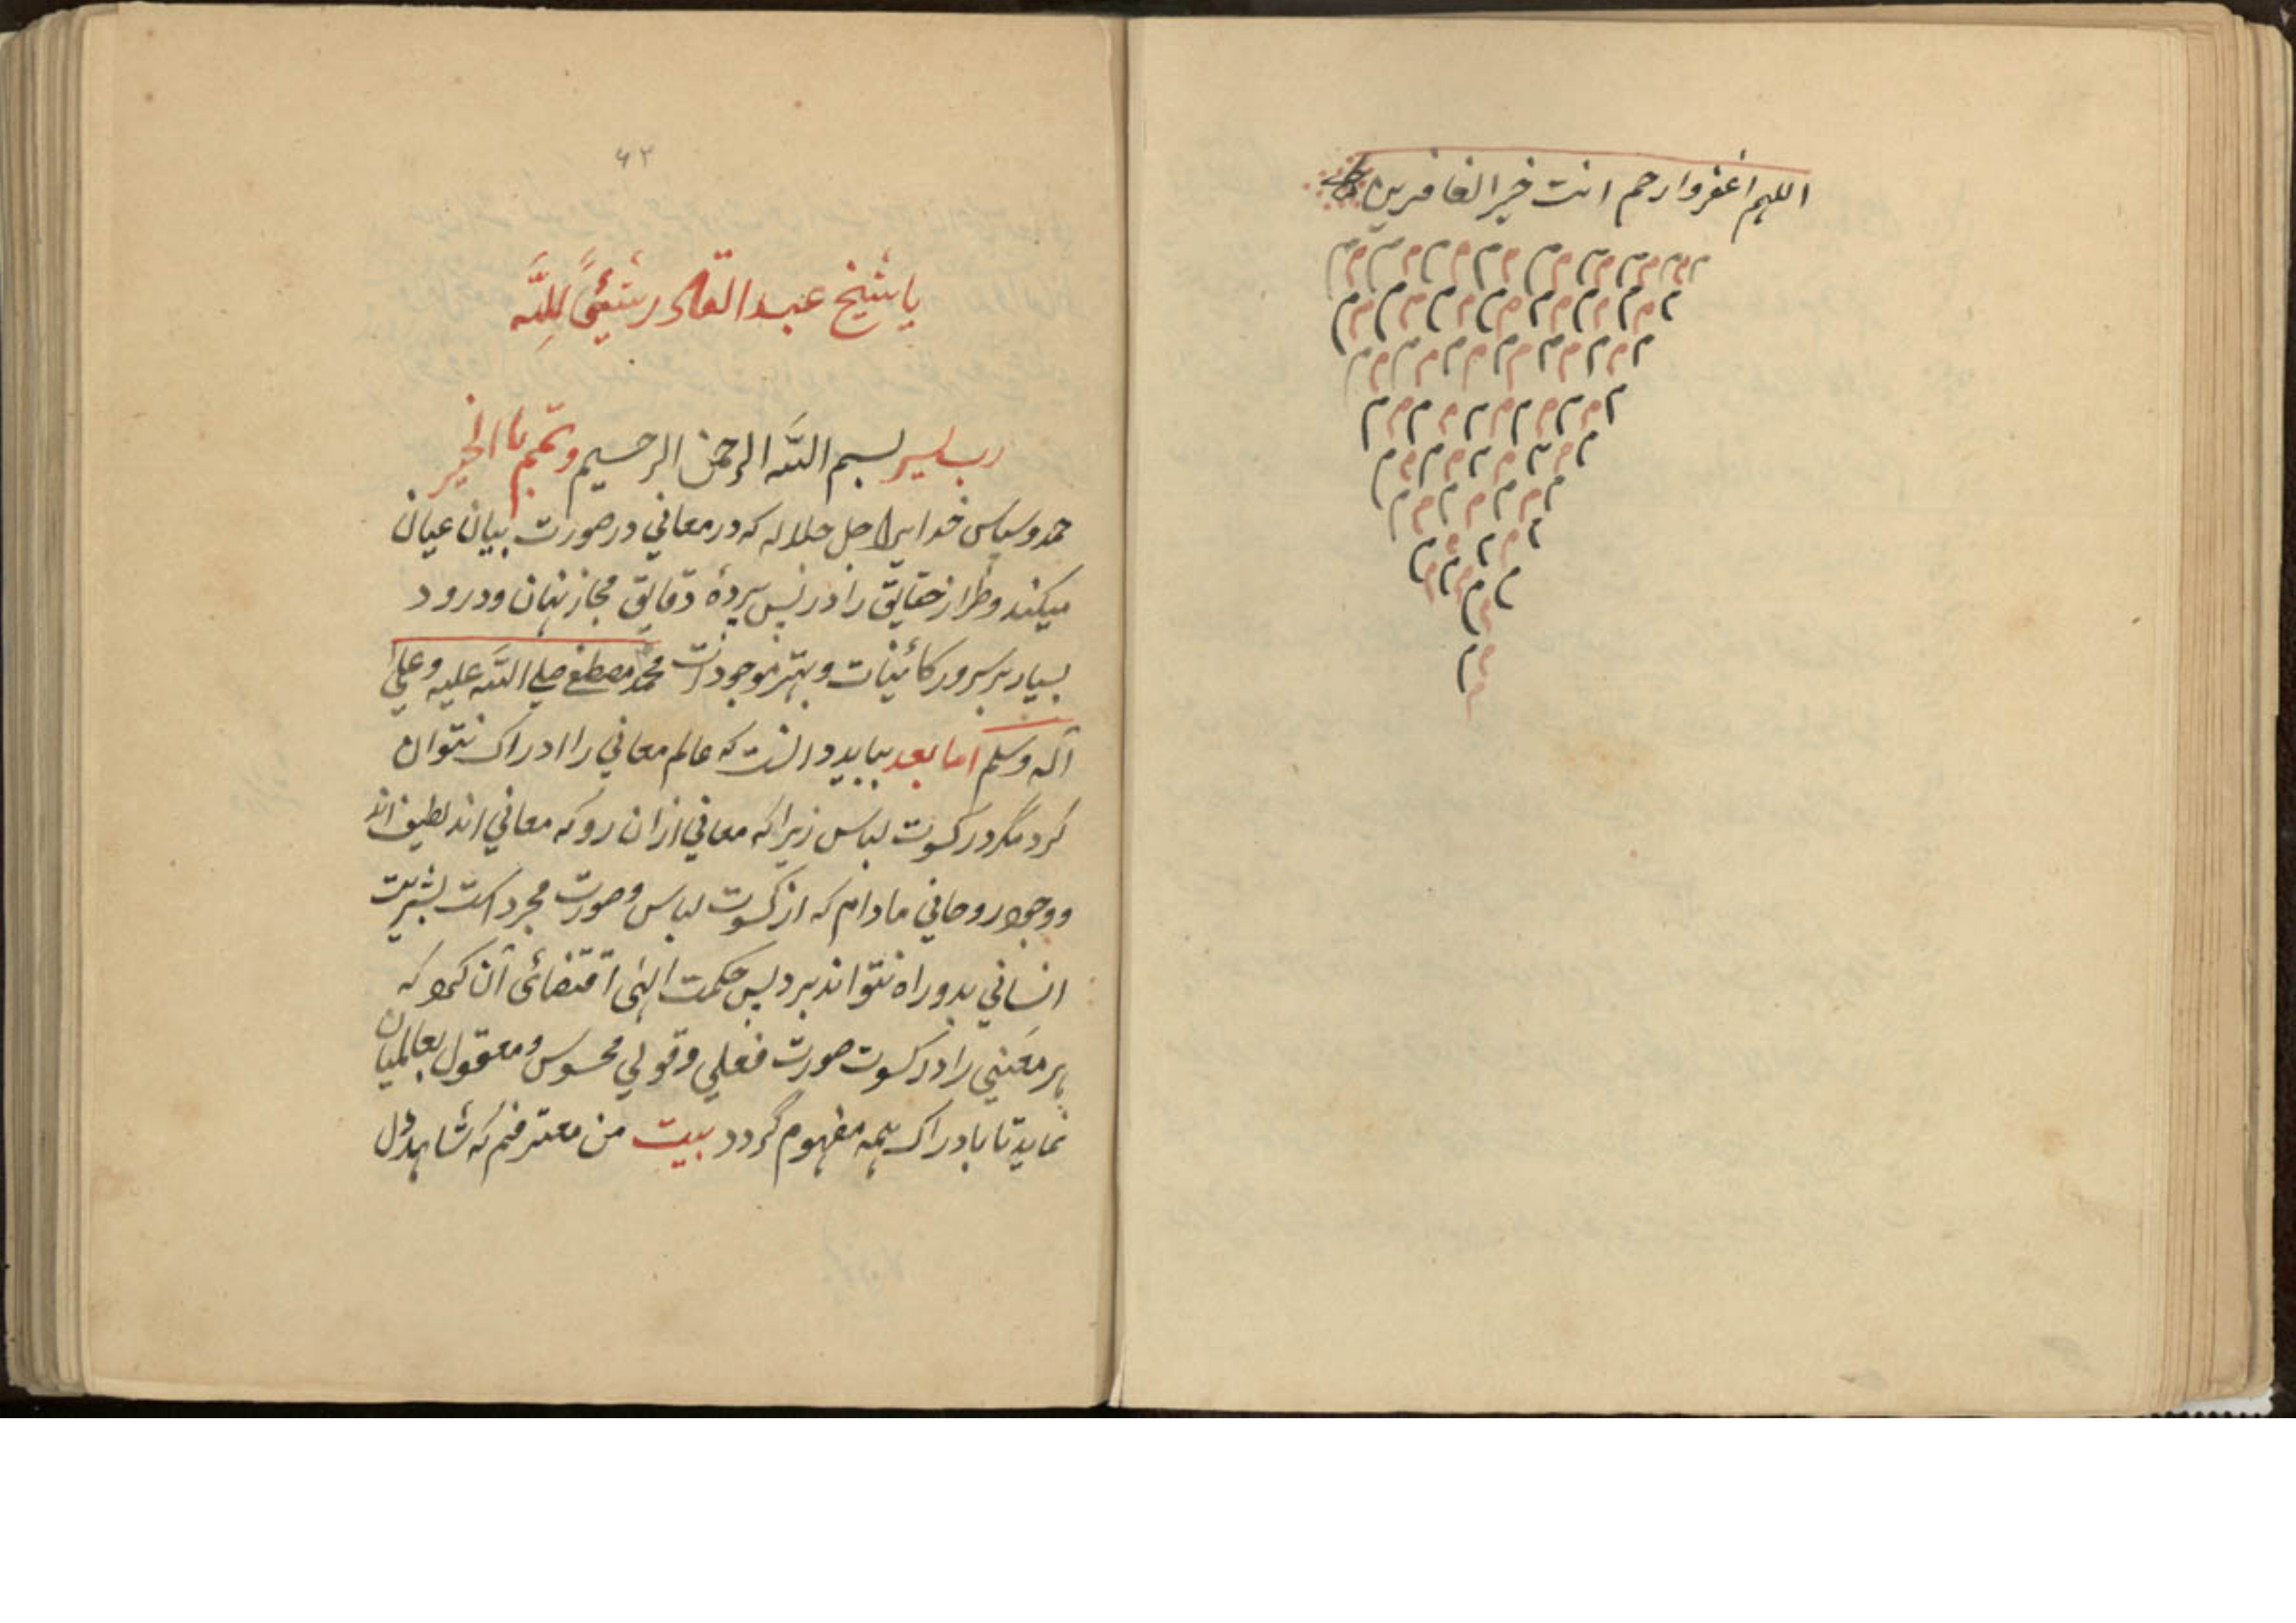 اللهم اغفر وارحم انت خیر الغافرین
م م م م م م م م م م م م م م م م
م م م م م م م م م م م م م م
م م م م م م م م م م م م م
م م م م م م م م م م
م م م م م م م م م
م م م م م م م
م م م م م م م
م م م
م م م
۶۲
یا شیخ عبد القادر شیئًا لِلّٰه
رب یسر بسم الله الرحمن الرحیم وتمم بالخیر
حمد و سپاس خدایرا جل جلاله که در معاني در صورت بیان عیان
میکند و طراز حقایق را در پس پردهٔ دقایق مجاز نهان و درود
بسیار بر سرور کائینات و بهتر موجودات محمد مصطفے صلے الله علیه وعلی
آله وسلم اما بعد بباید دانست که عالم معاني را ادراک نتوان
کرد مگر در کسوت لباس زیراکه معاني ازان رو که معاني اند لطیف اند
و وجود روحاني مادام که از کسوت لباس و صورت مجرد است بشریت
انساني بدو راه نتواند برد پس حکمت الهی اقتضائی آن کرد که
هر معنیي را در کسوت صورت فعلي و قولي محسوس و معقول بعالمیان
نماید تا بادراک همه مفهوم گردد بیت من معترفم که شاهد دل